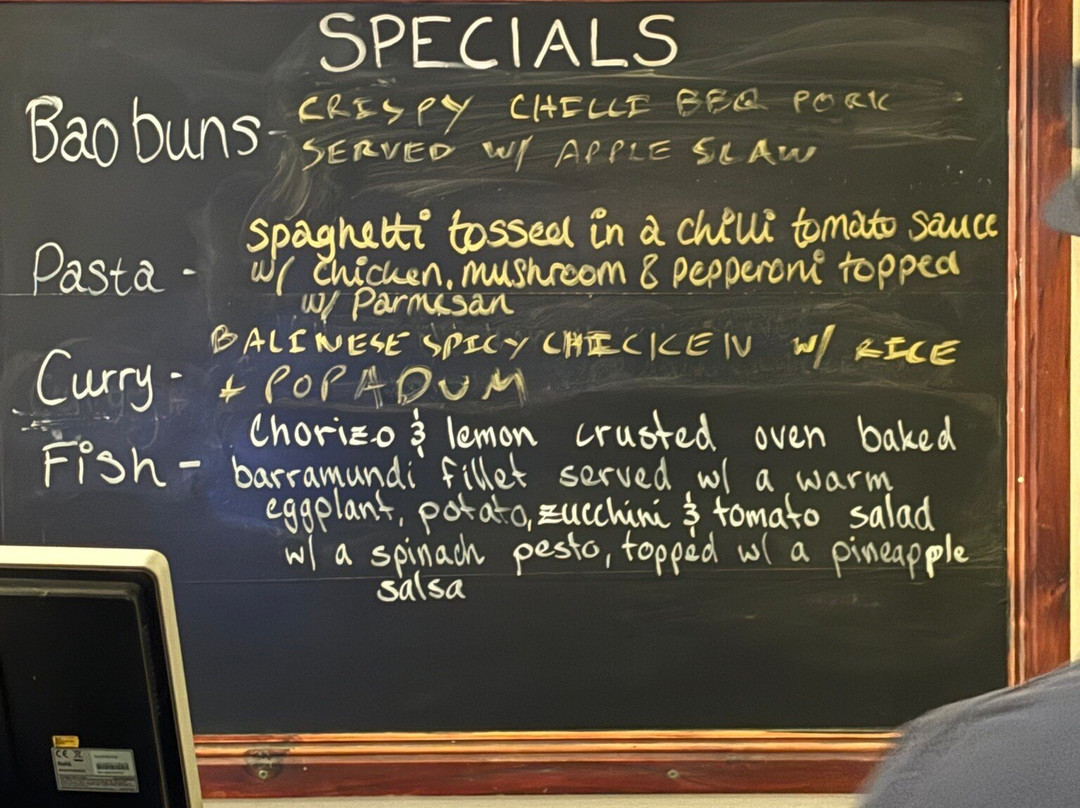 SPECIALS
Bao buns - CRISPY CHILLI BBQ PORK
SERVED W/ APPLE SLAW
spaghetti tossed in a chilli tomato sauce
Pasta - w/ chicken, mushroom & pepperoni topped
w/ Parmesan
BALINESE SPICY CHICKEN W/ RICE
Curry - + POPADUM
Chorizo & lemon crusted oven baked
Fish - barramundi fillet served w/ a warm
eggplant, potato, zucchini & tomato salad
w/ a spinach pesto, topped w/ a pineapple
salsa